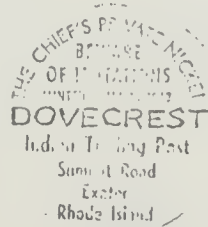 THE CHIEF'S PRIVATE NICKEL
BEWARE
OF IMITATIONS
DOVECREST
Indian Trading Post
Summit Road
Exeter
Rhode Island